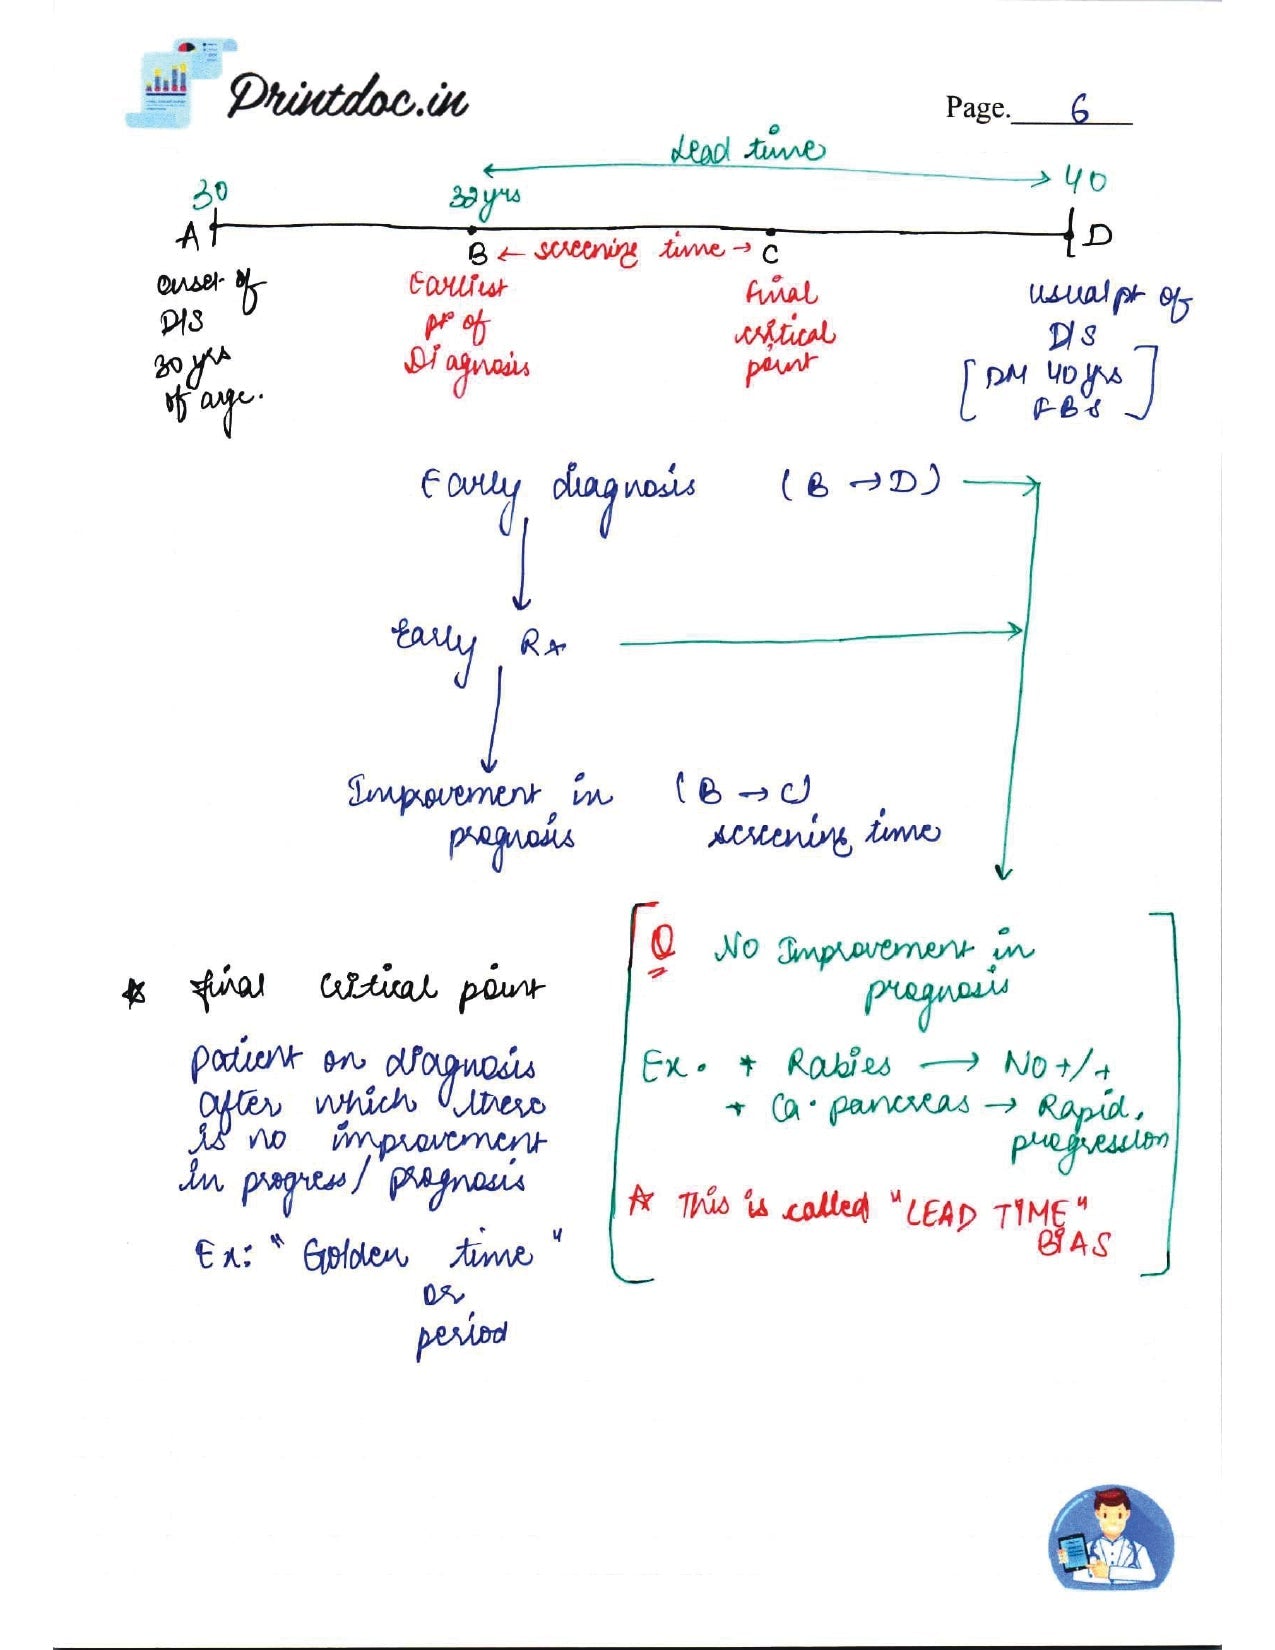 Printdoc.in
Page. 6
Lead time
30
32yrs
40
A
B ← screening time → C
D
onset of
DIS
30 yrs
of age.
Earliest
pt of
Diagnosis
final
critical
point
usual pt of
DIS
[DM 40yrs
FBS]
Early diagnosis (B → D)
Early Rx
Improvement in (B → C)
prognosis screening time
Q No Improvement in
prognosis
Ex. * Rabies → No t/t
* Ca. pancreas → Rapid
progression
☆ This is called "LEAD TIME"
BIAS
☆ final critical point
patient on diagnosis
after which there
is no improvement
in progress/prognosis
Ex: "Golden time"
or
period